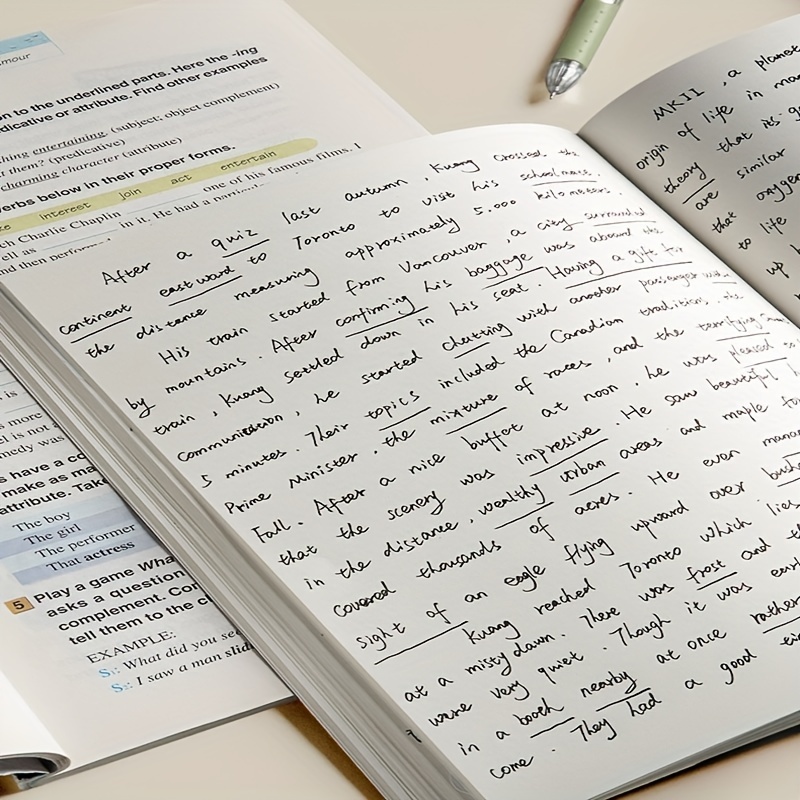 After a quiz last autumn, Kuang crossed the
continent eastward to Toronto to visit his schoolmate,
the distance measuring approximately 5.000 kilometers.
His train started from Vancouver, a city surrounded
by mountains. After confirming his baggage was aboard the
train, Kuang settled down in his seat. Having a gift for
communication, he started chatting with another passenger within
5 minutes. Their topics included the Canadian traditions, the
Prime Minister, the mixture of races, and the terrifying
Fall. After a nice buffet at noon, he was pleased
that the scenery was impressive. He saw beautiful
in the distance, wealthy urban areas and maple
covered thousands of acres. He even
sight of an eagle flying upward over
Kuang reached Toronto which lies
at a misty dawn. There was frost and
were very quiet. Though it was
in a booth nearby at once rather
come. They had a good
MKII, a planet
origin of life in
theory that its
are similar
oxygen
that
to life
up
amour
on to the underlined parts. Here the -ing
predicative or attribute. Find other examples
entertaining. (subject; object complement)
them? (predicative)
charming character (attribute)
verbs below in their proper forms.
interest join act entertain
Charlie Chaplin ______ one of his famous films, I
______ in it. He had a
and then
more
is not
was
have a
make as
attribute.
The boy
The girl
The performer
That actress
5 Play a game
asks a question
complement.
tell them to the
EXAMPLE:
S₁: What did you see
S₂: I saw a man